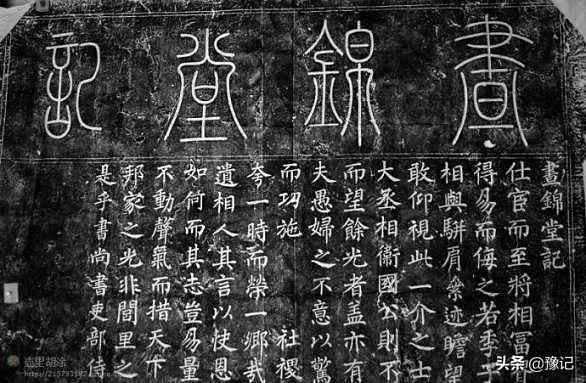 晝錦堂記
晝錦堂記
仕宦而至將相富
得易而侮之若季子
相與駢肩絫迹瞻望
敢仰視此一介之士
大丞相衛國公則不
而望餘光者葢亦有
夫愚婦之不意以驚
而功施 社稷
夸一時而榮一鄉哉
遺相人其言以使恩
如何而其志豈易量
不動聲氣而措天下
邦家之光非閭里之
是乎書尚書吏部侍
头条 @豫记